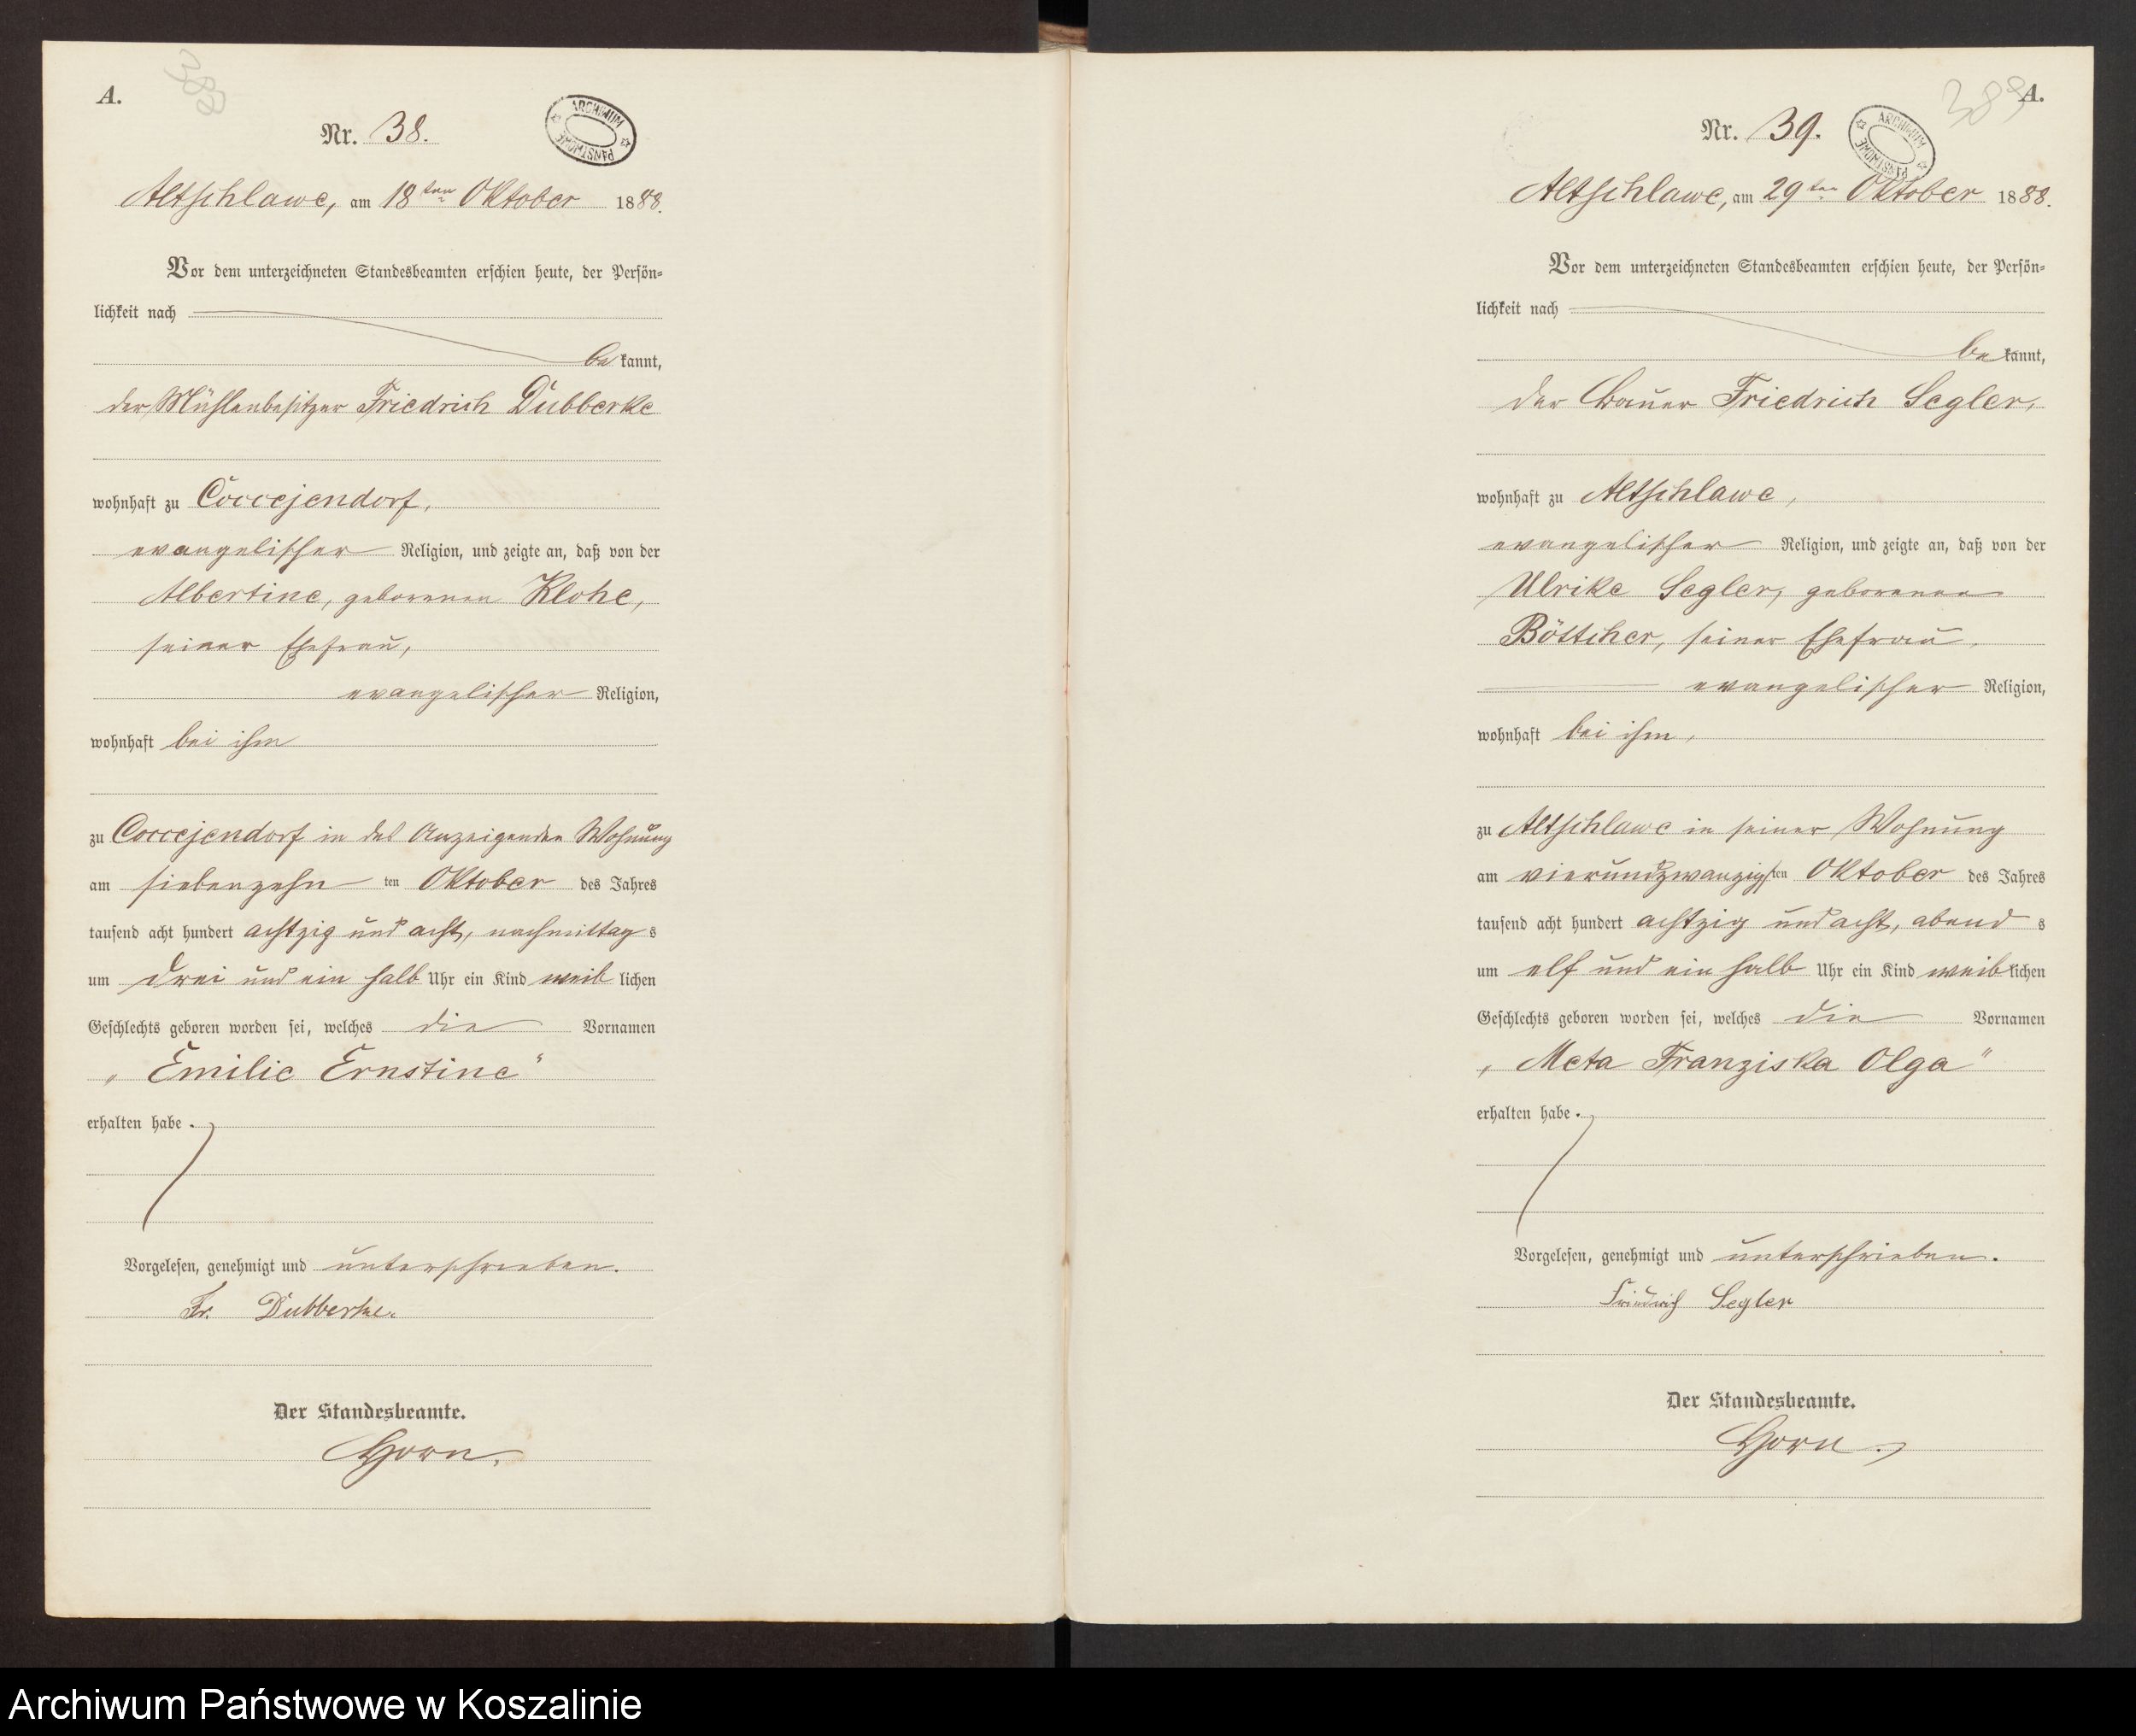 A.
388
Nr. 38.
ARCHIWUM PAŃSTWOWE
Altschlawe, am 18ten Oktober 1888.
Vor dem unterzeichneten Standesbeamten erschien heute, der Persön-
lichkeit nach
be kannt,
der Mühlenbesitzer Friedrich Dubberke
wohnhaft zu Coccejendorf,
evangelischer Religion, und zeigte an, daß von der
Albertine, geborenen Klohe,
seiner Ehefrau,
evangelischer Religion,
wohnhaft bei ihm
zu Coccejendorf in des Anzeigenden Wohnung
am siebenzehn ten Oktober des Jahres
tausend acht hundert achtzig und acht, nachmittag s
um drei und ein halb Uhr ein Kind weib lichen
Geschlechts geboren worden sei, welches die Vornamen
„Emilie Ernstine“
erhalten habe.
Vorgelesen, genehmigt und unterschrieben.
Fr. Dubberke.
Der Standesbeamte.
Horn.
389
A.
Nr. 39.
ARCHIWUM PAŃSTWOWE
Altschlawe, am 29ten Oktober 1888.
Vor dem unterzeichneten Standesbeamten erschien heute, der Persön-
lichkeit nach
be kannt,
der Bauer Friedrich Segler,
wohnhaft zu Altschlawe,
evangelischer Religion, und zeigte an, daß von der
Ulrike Segler, geborenen
Böttcher, seiner Ehefrau,
evangelischer Religion,
wohnhaft bei ihm,
zu Altschlawe in seiner Wohnung
am vierundzwanzigsten Oktober des Jahres
tausend acht hundert achtzig und acht, abend s
um elf und ein halb Uhr ein Kind weiblichen
Geschlechts geboren worden sei, welches die Vornamen
„Meta Franziska Olga“
erhalten habe.
Vorgelesen, genehmigt und unterschrieben.
Friedrich Segler
Der Standesbeamte.
Horn.
Archiwum Państwowe w Koszalinie